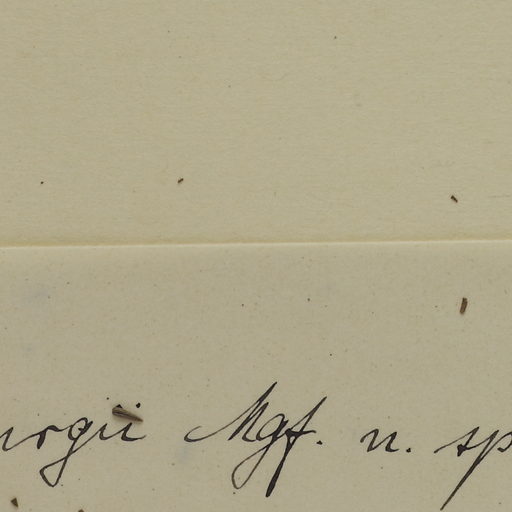 urgii Mgf. n. sp